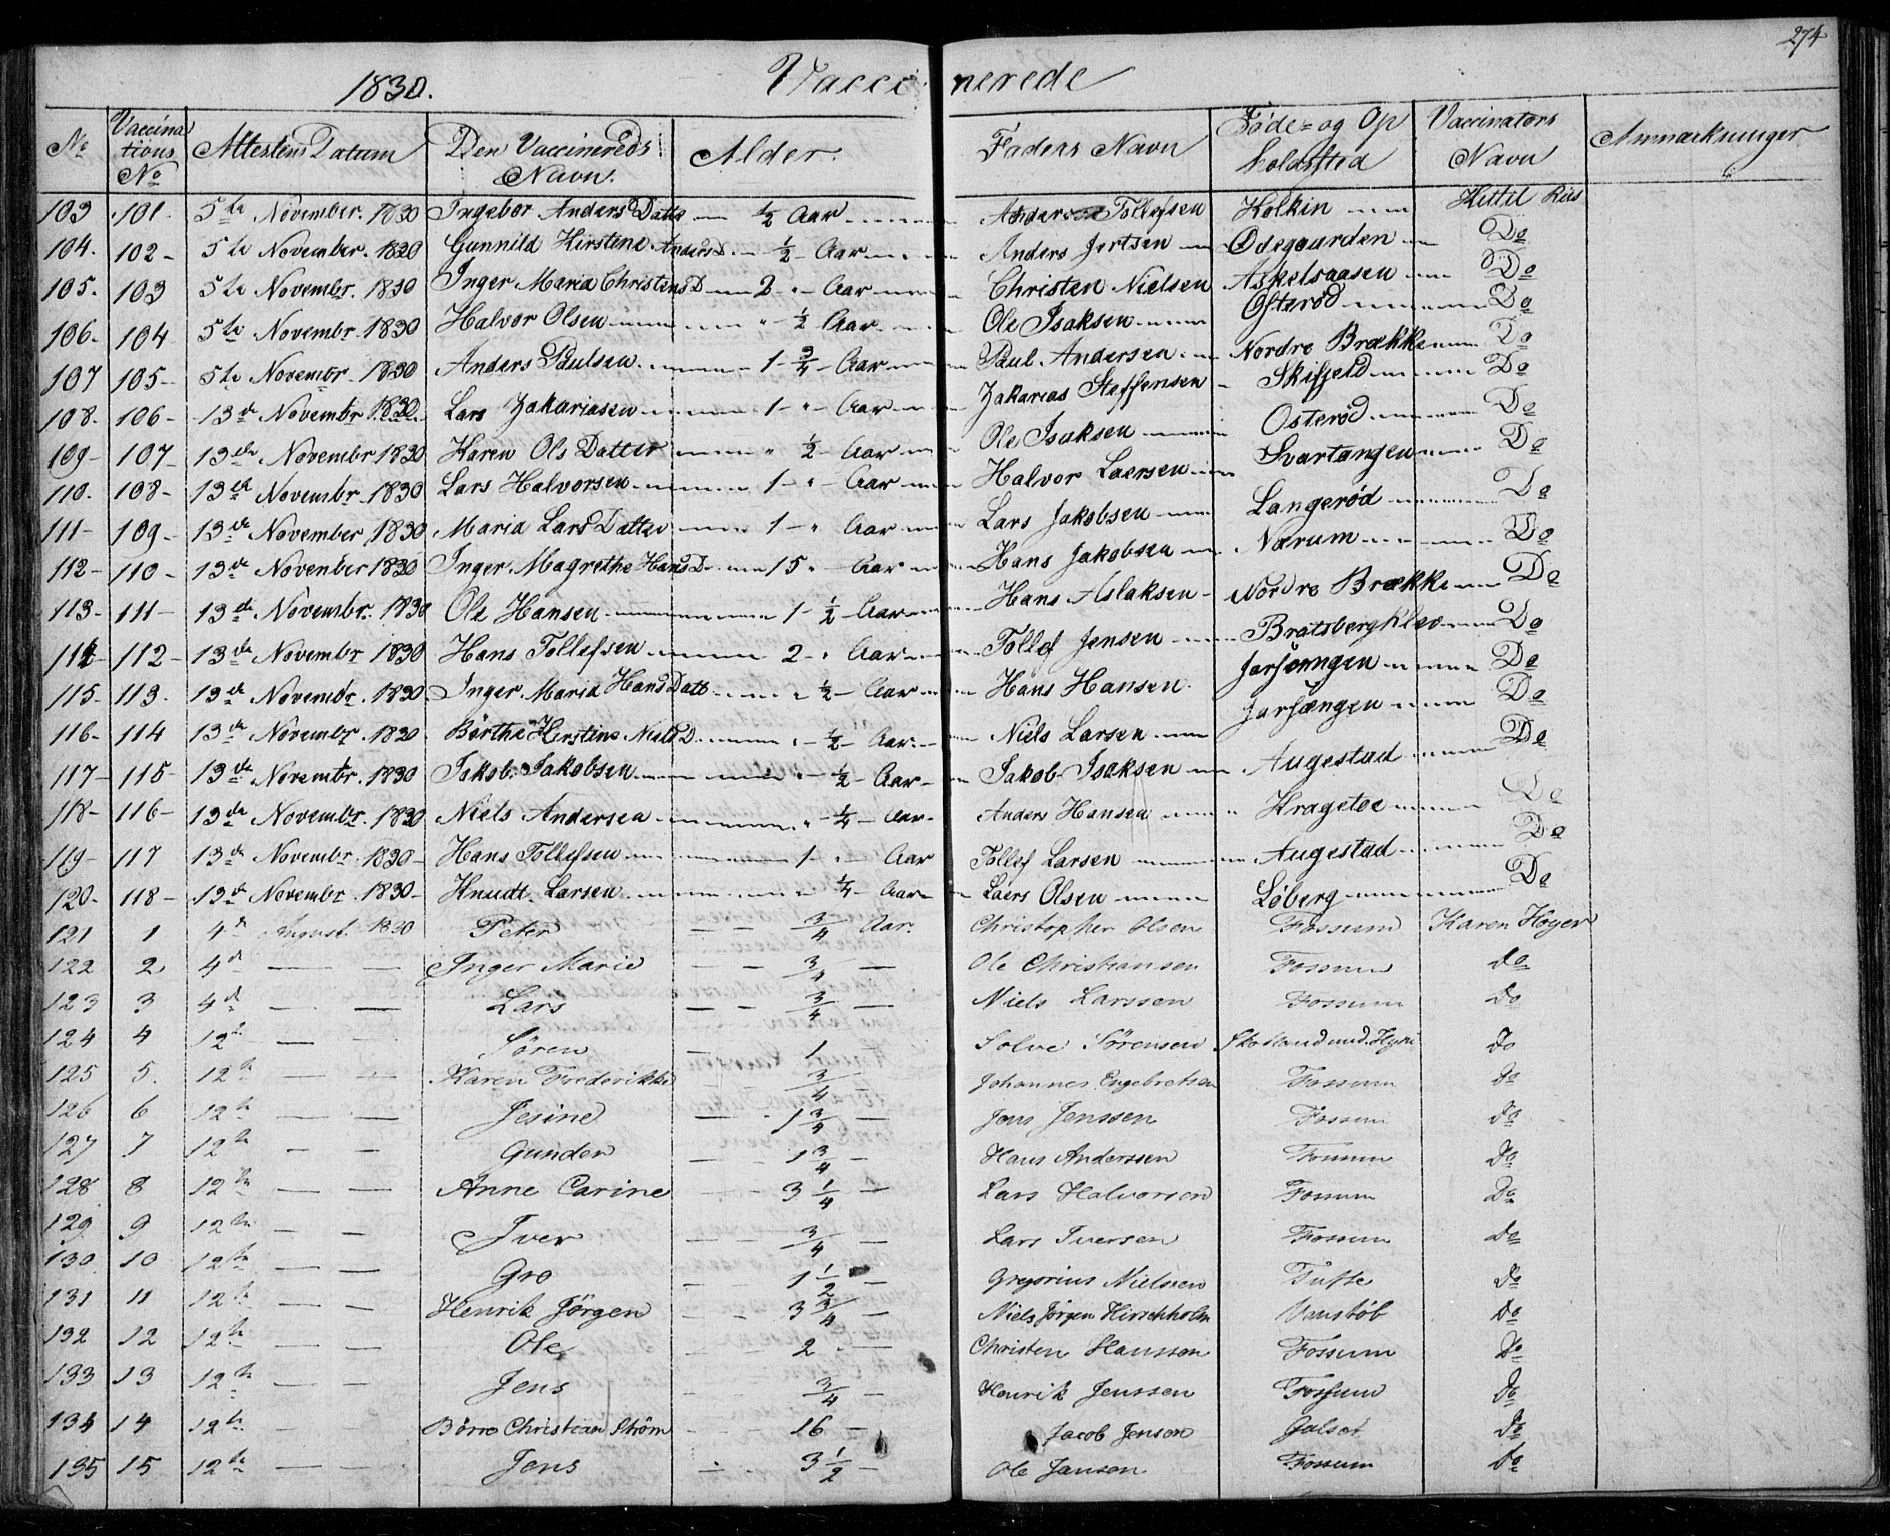 274
1830. Vaccinerede
No | Vaccinations No | Attestens Datum | Den Vaccineredes Navn. | Alder. | Faders Navn | Føde- og Opholdssted | Vaccinators Navn | Anmærkninger
103 101. 5te November. 1830 Ingebor Anders Datte ½ Aar Anders Tollefsen Holkin Kittil Riis
104. 102 5te November. 1830 Gunnild Kirstine Anders D. ½ Aar Anders Jertsen Ødegaarden Do
105. 103 5te Novembr. 1830 Inger Maria Christens D 2 " Aar Christen Nielsen Askelsaasen Do
106. 104 5te Novembr. 1830 Halvor Olsen " ½ Aar Ole Isaksen Osterød Do
107 105 5te Novembr. 1830 Anders Paulsen 1 ¾ Aar Paul Andersen Nordre Brække Do
108. 106 13de Novembr 1830. Lars Zakariasen 1 " Aar Zakarias Steffensen Skifjeld Do
109 107 13de November 1830 Karen Ols Datter " ½ Aar Ole Isaksen Osterød Do
110. 108 13de Novembr. 1830 Lars Halvorsen 1 " Aar Halvor Laersen Svartangen Do
111 109 13de November 1830 Maria Lars Datter 1 " Aar Lars Jakobsen Langerød Do
112 110 13de November 1830 Inger Magrethe Hans D. 15 " Aar Hans Jakobsen Nærum Do
113 111 13de Novembr. 1830 Ole Hansen 1 ½ Aar Hans Aslaksen Nordre Brække Do
114 112 13de Novembr 1830 Hans Tollefsen 2 " Aar Tollef Jensen Bratsbergklev Do
115 113. 13de Novembr. 1830. Inger Maria Hans Datt " ½ Aar Hans Hansen Do
116 114 13de Novembr. 1830 Börthe Kirstine Niels D. " ½ Aar Niels Larsen Do
117 115 13de Novembr. 1830 Jakob Jakobsen " ½ Aar Jakob Isaksen Augestad Do
118 116 13de Novembr. 1830 Niels Andersen " ¼ Aar Anders Hansen Kragetee Do
119 117 13de Novembr. 1830 Hans Tollefsen 1 " Aar Tollef Larsen Augestad Do
120 118 13de November 1830 Knudt Larsen " ¼ Aar Laers Olsen Løberg Do
121 1 4de August 1830 Peter ¾ Aar. Christopher Olsen Fossum Karen Høyer
122 2 4de — — Inger Marie ¾ — Ole Christiansen Fossum do
123 3 4de — — Lars ¾ — Niels Larssen Fossum do
124 4 12te — — Søren 1 Solve Sørensen do
125 5. 12te — — Karen Frederikke ¾ Johannes Engebretsen Fossum do
126 6 12te — — Jesine 1¾ Jens Jenssen Fossum do
127 7 12te — — Gunder 1¾ — Hans Anderssen Fossum Do
128 8 12te — — Anne Carine 3¼ — Lars Halvorsen Fossum Do
129 9 12te — — Iver ¾ — Lars Iversen Fossum do
130 10 12te — — Gro 1½ — Gregorius Nielssen Tufte do
131 11 12te — — Henrik Jörgen 3¾ — Niels Jørgen Hirschholm Vanstöb do
132 12 12te — — Ole 2 — Christen Hanssen Fossum Do
133 13 12te — — Jens ¾ — Henrik Jenssen Fossum do
134 14 12te — Börre Christian Ström 16 — Jacob Jensen Gulset do
135 15 12te — — Jens 3½ — Ole Jansen Fossum do